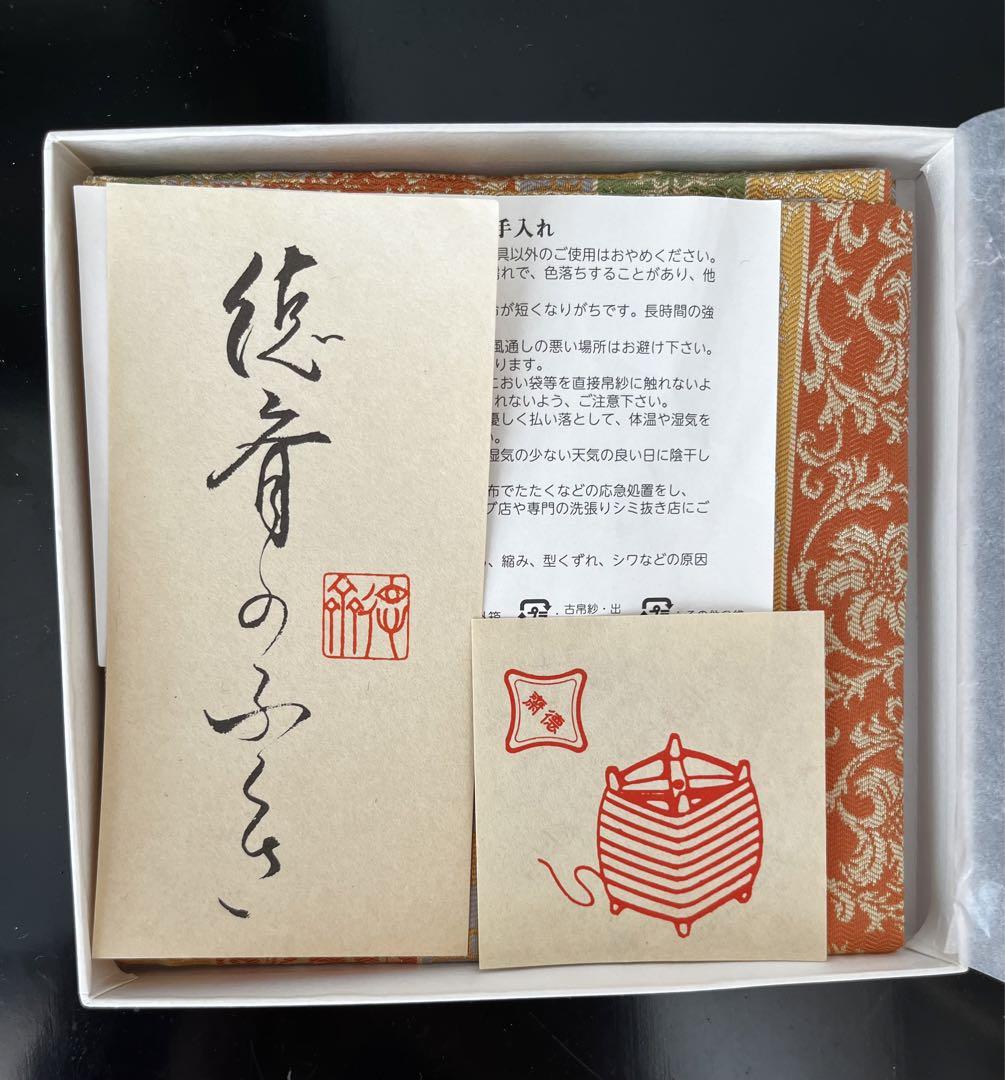 徳斎のふくさ
手入れ
具以外のご使用はおやめください。
れで、色落ちすることがあり、他
が短くなりがちです。長時間の強
風通しの悪い場所はお避け下さい。
ります。
におい袋等を直接帛紗に触れないよ
れないよう、ご注意下さい。
優しく払い落として、体温や湿気を
い。
湿気の少ない天気の良い日に陰干し
布でたたくなどの応急処置をし、
プ店や専門の洗張りシミ抜き店にご
、縮み、型くずれ、シワなどの原因
プラ ・古帛紗・出
德齋